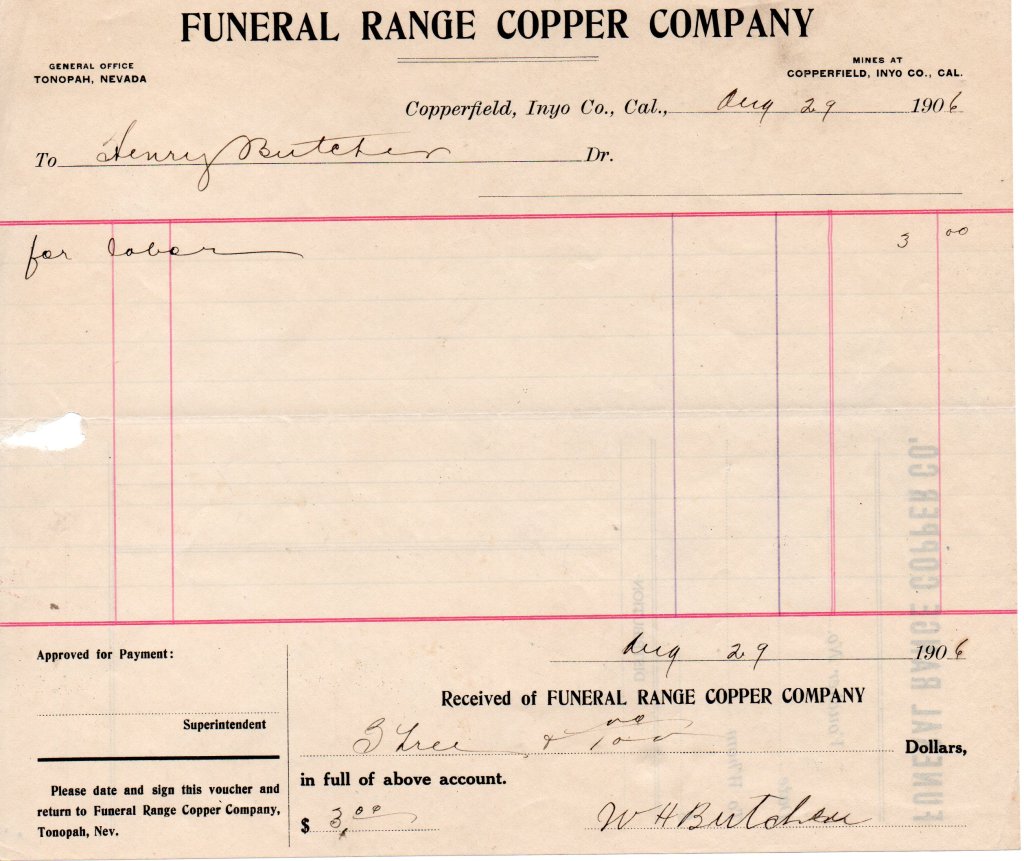 FUNERAL RANGE COPPER COMPANY
GENERAL OFFICE
TONOPAH, NEVADA
MINES AT
COPPERFIELD, INYO CO., CAL.
Copperfield, Inyo Co., Cal., Aug 29 1906
To Henry Butcher Dr.
for labor 3 00
Aug 29 1906
Approved for Payment:
Superintendent
Please date and sign this voucher and
return to Funeral Range Copper Company,
Tonopah, Nev.
Received of FUNERAL RANGE COPPER COMPANY
Three & 00/100 Dollars,
in full of above account.
$ 3.00 W H Butcher
FUNERAL RANGE COPPER CO.